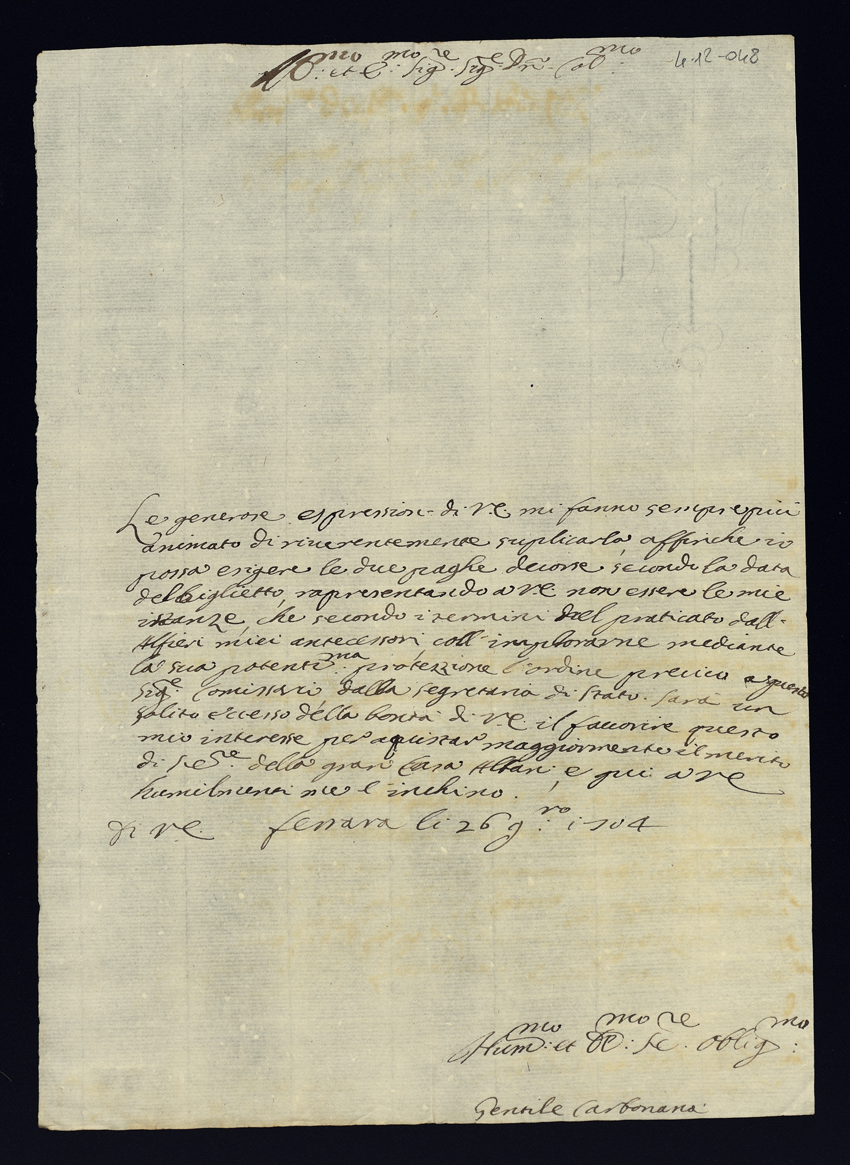 Ill:mo et E:mo Sig:re Sig:re Prn Col:mo
4.12-048
Le generose espression- di VE. mi fanno sempre più
animato di riuerentemente suplicarla, affinche io
possa esigere le due paghe decorse, secondo la data
del biglietto, rapresentando a VE non essere le mie
istanze, che secondo i termini del praticato dall-
Alfieri miei antecessori, coll-implorarne mediante
la sua potenti:ma protezzione l'ordine preciso a questo
Sig:re Comissario dalla segretaria di stato. Sarà un
solito eccesso della bontà di VE. il fauorire questo
mio interesse per aquistar maggiormente il merito
di Se:re della gran Casa Altani, e qui a VE
humilmenti me l'inchino.
Di VE. Ferrara li 26 9:ro 1704
Hum:mo et D:mo Se:re Oblig:mo
Gentile Carbonana